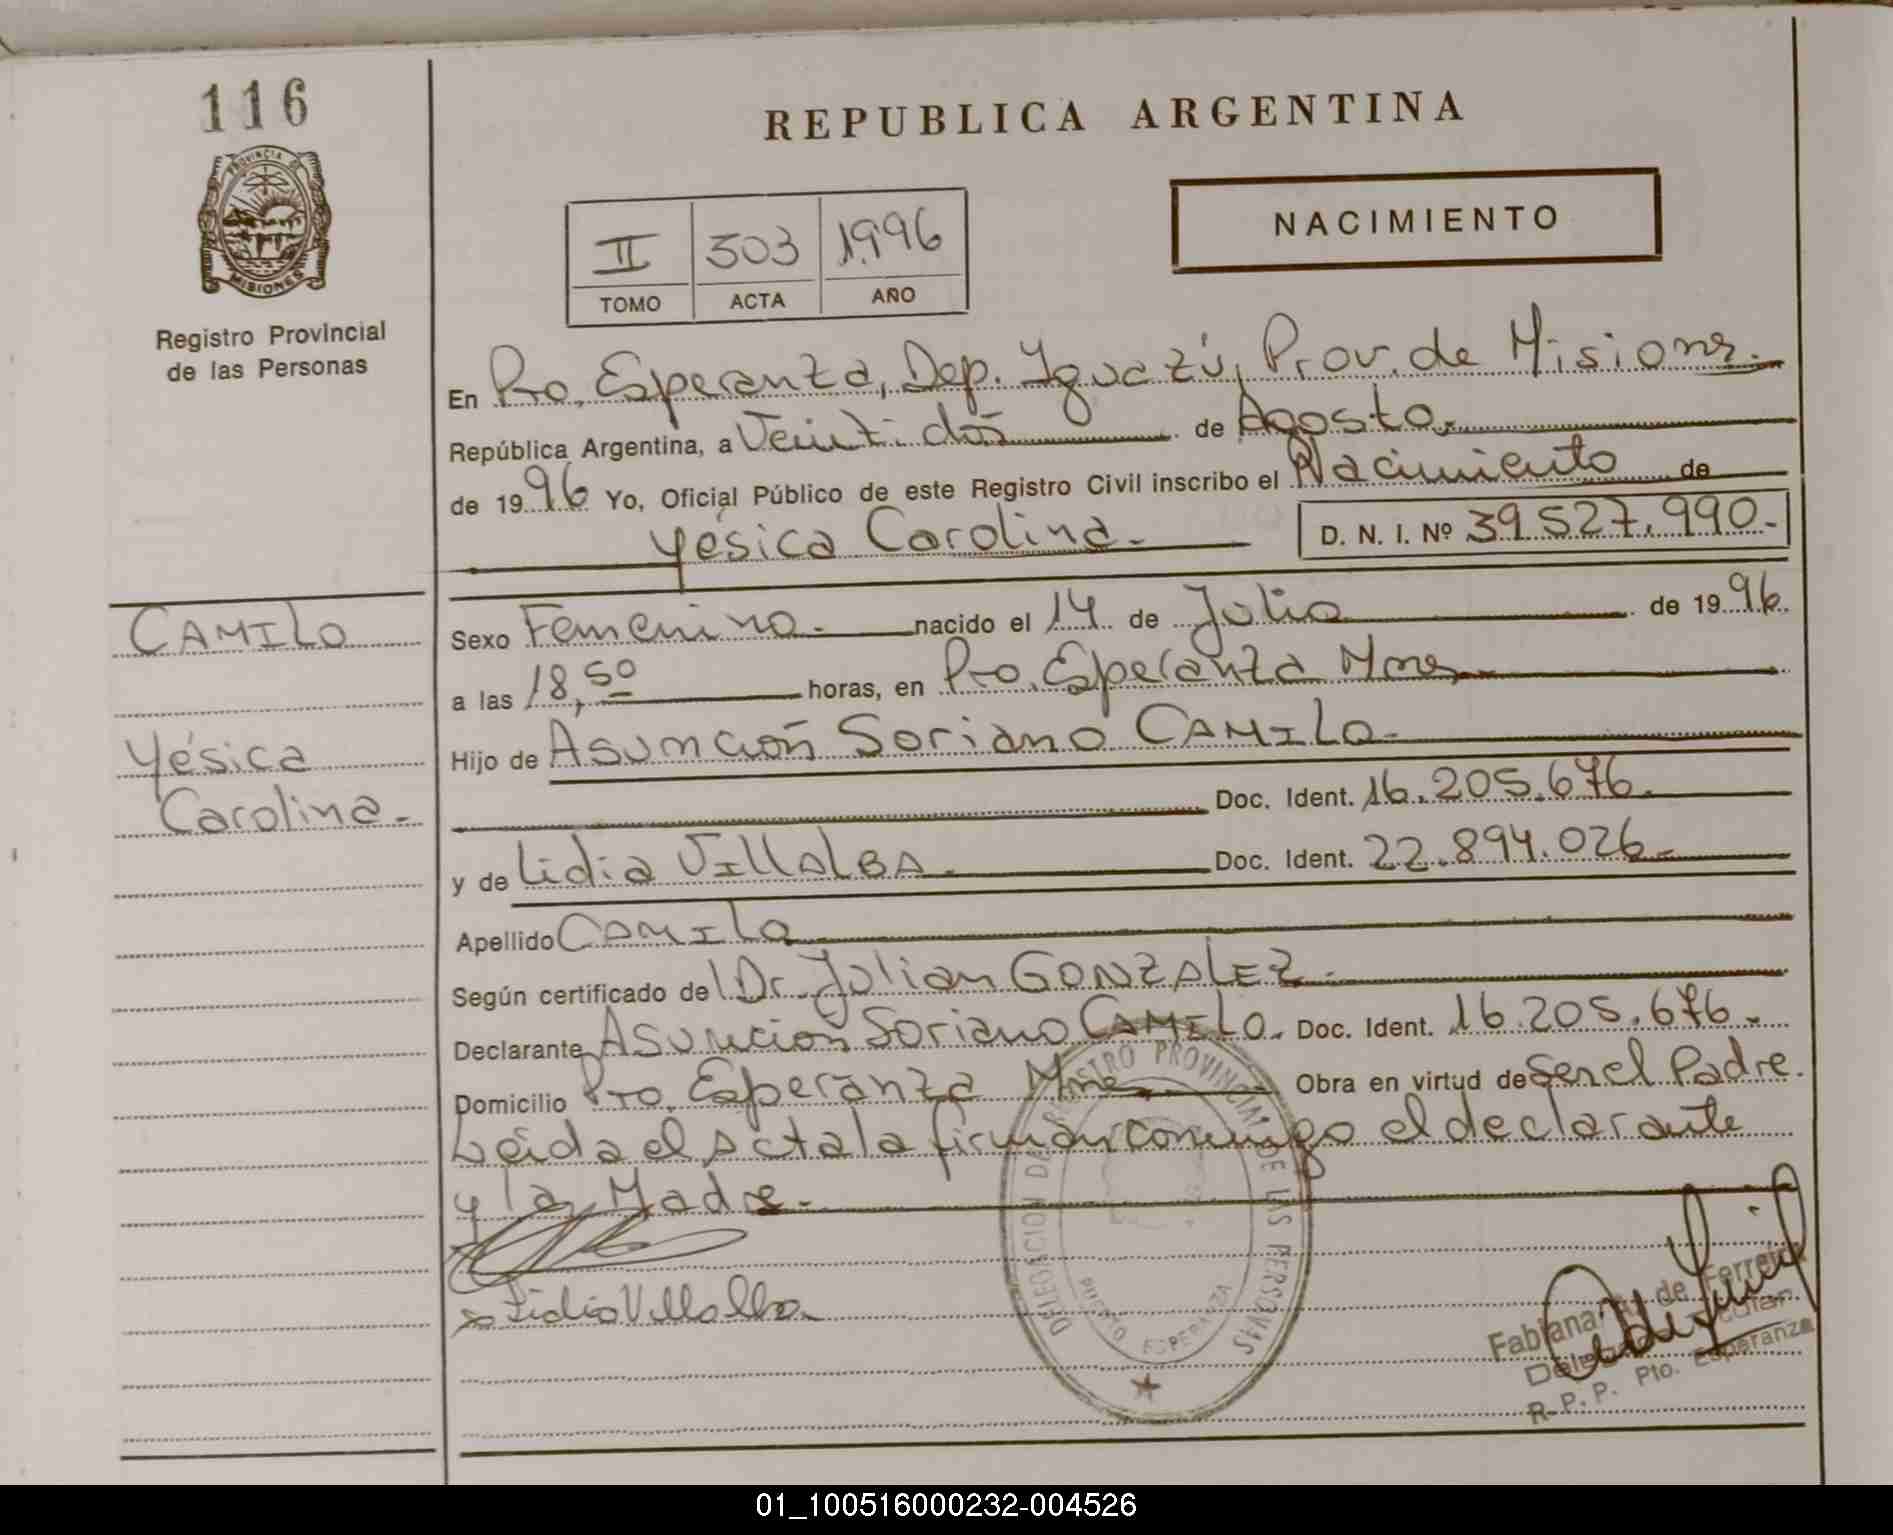 116
PROVINCIA DE
MISIONES
Registro Provincial
de las Personas
REPUBLICA ARGENTINA
NACIMIENTO
II 303 1.996
TOMO ACTA AÑO
En Pto. Esperanza, Dep. Iguazú, Prov. de Misiones.
República Argentina, a Veinti dós de Agosto.
de 1996 Yo, Oficial Público de este Registro Civil inscribo el Nacimiento de
Yésica Carolina.
D. N. I. Nº 39.527.990.-
CAMILO
Yésica
Carolina.-
Sexo Femenino. nacido el 14 de Julio de 1996.
a las 18,50 horas, en Pto. Esperanza Mnes.
Hijo de Asunción Soriano CAMILO.
Doc. Ident. 16.205.676.
y de Lidia VILLALBA. Doc. Ident. 22.894.026.-
Apellido CAMILO
Según certificado de l Dr. Julian GONZALEZ.
Declarante Asuncion Soriano CAMILO. Doc. Ident. 16.205.676.
Domicilio Pto. Esperanza Mnes Obra en virtud de Ser el Padre.
Leida el Acta la firman conmigo el declarante
y la Madre.
Lidia Villalba
DELEGACION DE REGISTRO PROVINCIAL DE LAS PERSONAS
PUERTO ESPERANZA
Fabiana de Ferreira
R. P. P. Pto. Esperanza
01_100516000232-004526